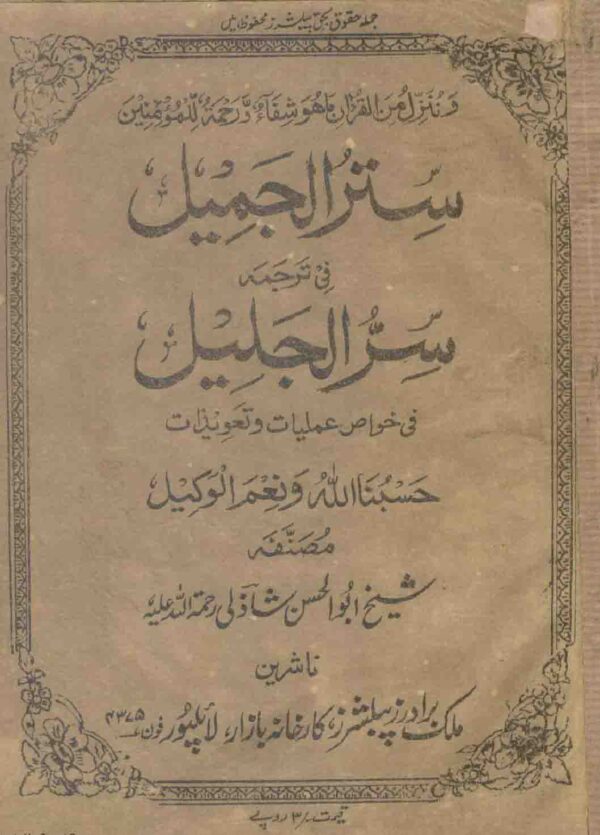 جملہ حقوق بحق پبلیشرز محفوظ ہیں
وَنُنَزِّلُ مِنَ الْقُرْاٰنِ مَا هُوَ شِفَآءٌ وَّرَحْمَةٌ لِّلْمُؤْمِنِيْنَ
سِتْرُ الْجَمِیْل
فِیْ تَرجَمَہ
سِرُّ الْجَلِیْل
فی خواص عملیات و تعویذات
حَسْبُنَا اللّٰهُ وَنِعْمَ الْوَكِيْلُ
مُصَنَّفَہ
شیخ ابوالحسن شاذلی رحمۃ اللہ علیہ
ناشرین
ملک برادرز پبلشرز، کارخانہ بازار، لائلپور فون ۴۳۷۵
قیمت ۳/ روپے